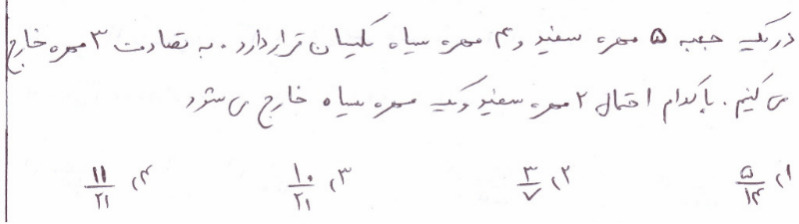 در یک جعبه ۵ مهره سفید و ۴ مهره سیاه یکسان قرار دارد. به تصادف ۳ مهره خارج
می کنیم. با کدام احتمال ۲ مهره سفید و یک مهره سیاه خارج می شود
۱) ۵/۱۴ ۲) ۳/۷ ۳) ۱۰/۲۱ ۴) ۱۱/۲۱